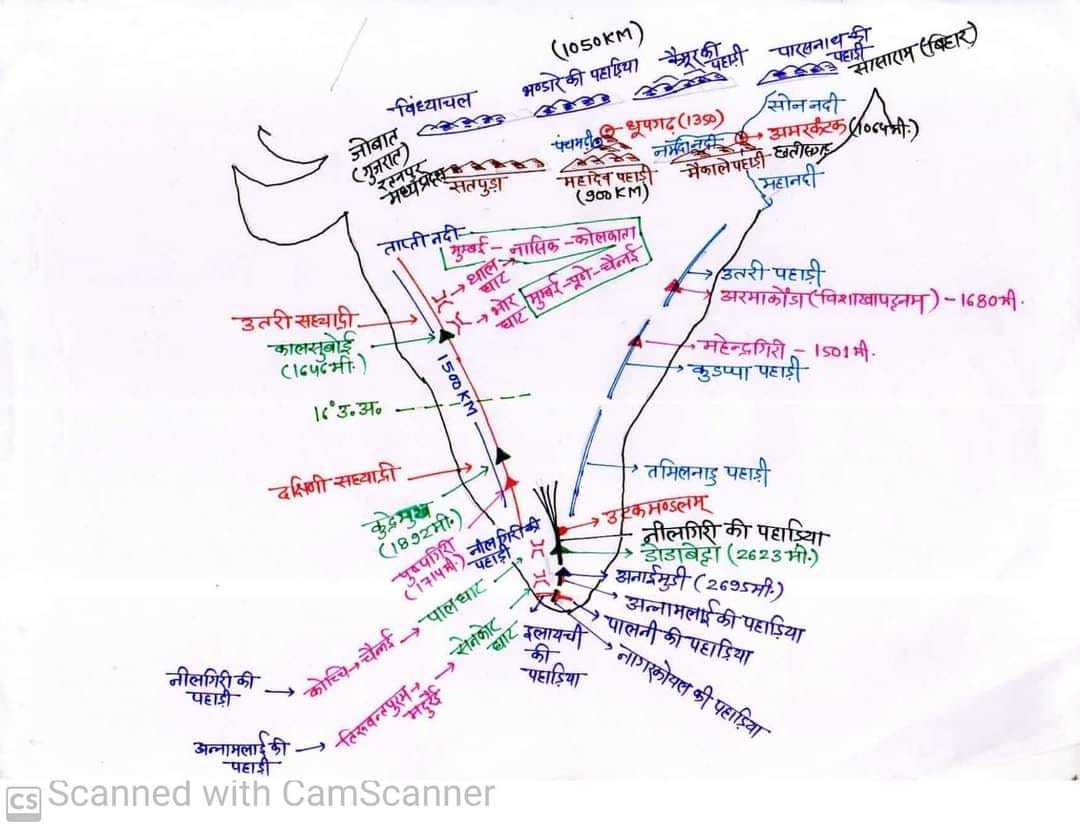 (1050KM)
विंध्याचल
भण्डारे की पहाड़िया
कैमूर की
पहाड़ी
पारसनाथ की
पहाड़ी
सासाराम (बिहार)
जोबात
(गुजरात)
रतनपुर
मध्यप्रदेश
सतपुड़ा
पंचमढ़ी
धूपगढ़ (1350)
महादेव पहाड़ी
(900KM)
नर्मदा नदी
मैकाले पहाड़ी
सोन नदी
अमरकंटक (1064मी.)
छत्तीसगढ़
महानदी
ताप्ती नदी
मुम्बई - नासिक - कोलकाता
थाल
घाट
भोर
घाट
मुम्बई-पूणे-चैन्नई
उतरी सहयाद्री
कालसुबोई
(1646मी.)
1500KM
16° उ. अ.
उतरी पहाड़ी
अरमाकोंडा (विशाखापट्टनम) - 1680मी.
महेन्द्रगिरी - 1501मी.
कुडप्पा पहाड़ी
दक्षिणी सहयाद्री
तमिलनाडु पहाड़ी
कुद्रेमुख
(1892मी.)
पुष्पगिरि
(1714मी.)
नीलगिरी की
पहाड़ी
उटकमण्डलम्
नीलगिरी की पहाड़िया
डोडाबेट्टा (2623मी.)
अनाईमुडी (2695मी.)
अन्नामलाई की पहाड़िया
पालनी की पहाड़िया
नागरकोयल की पहाड़िया
इलायची
की
पहाड़िया
पाल घाट
सेनकोट
घाट
नीलगिरी की
पहाड़ी
कोच्चि → चैन्नई
अन्नामलाई की
पहाड़ी
तिरुवन्तपुरम →
मदुरई
CS Scanned with CamScanner